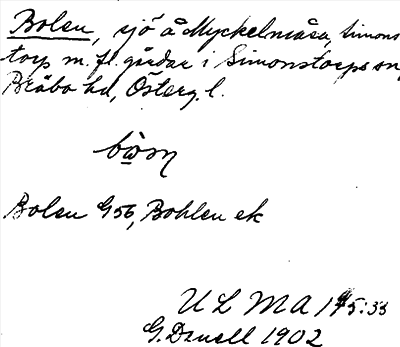 Bolen, sjö å Myckelmåsa, Simons
torp m. fl. gårdar i Simonstorps sn,
Bråbo hd, Österg. l.
Bolen G56, Bohlen ek
ULMA 195:33
G. Danell 1902